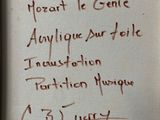 Mozart le Genie
Acrylique sur toile
Incrustation
Partition Musique